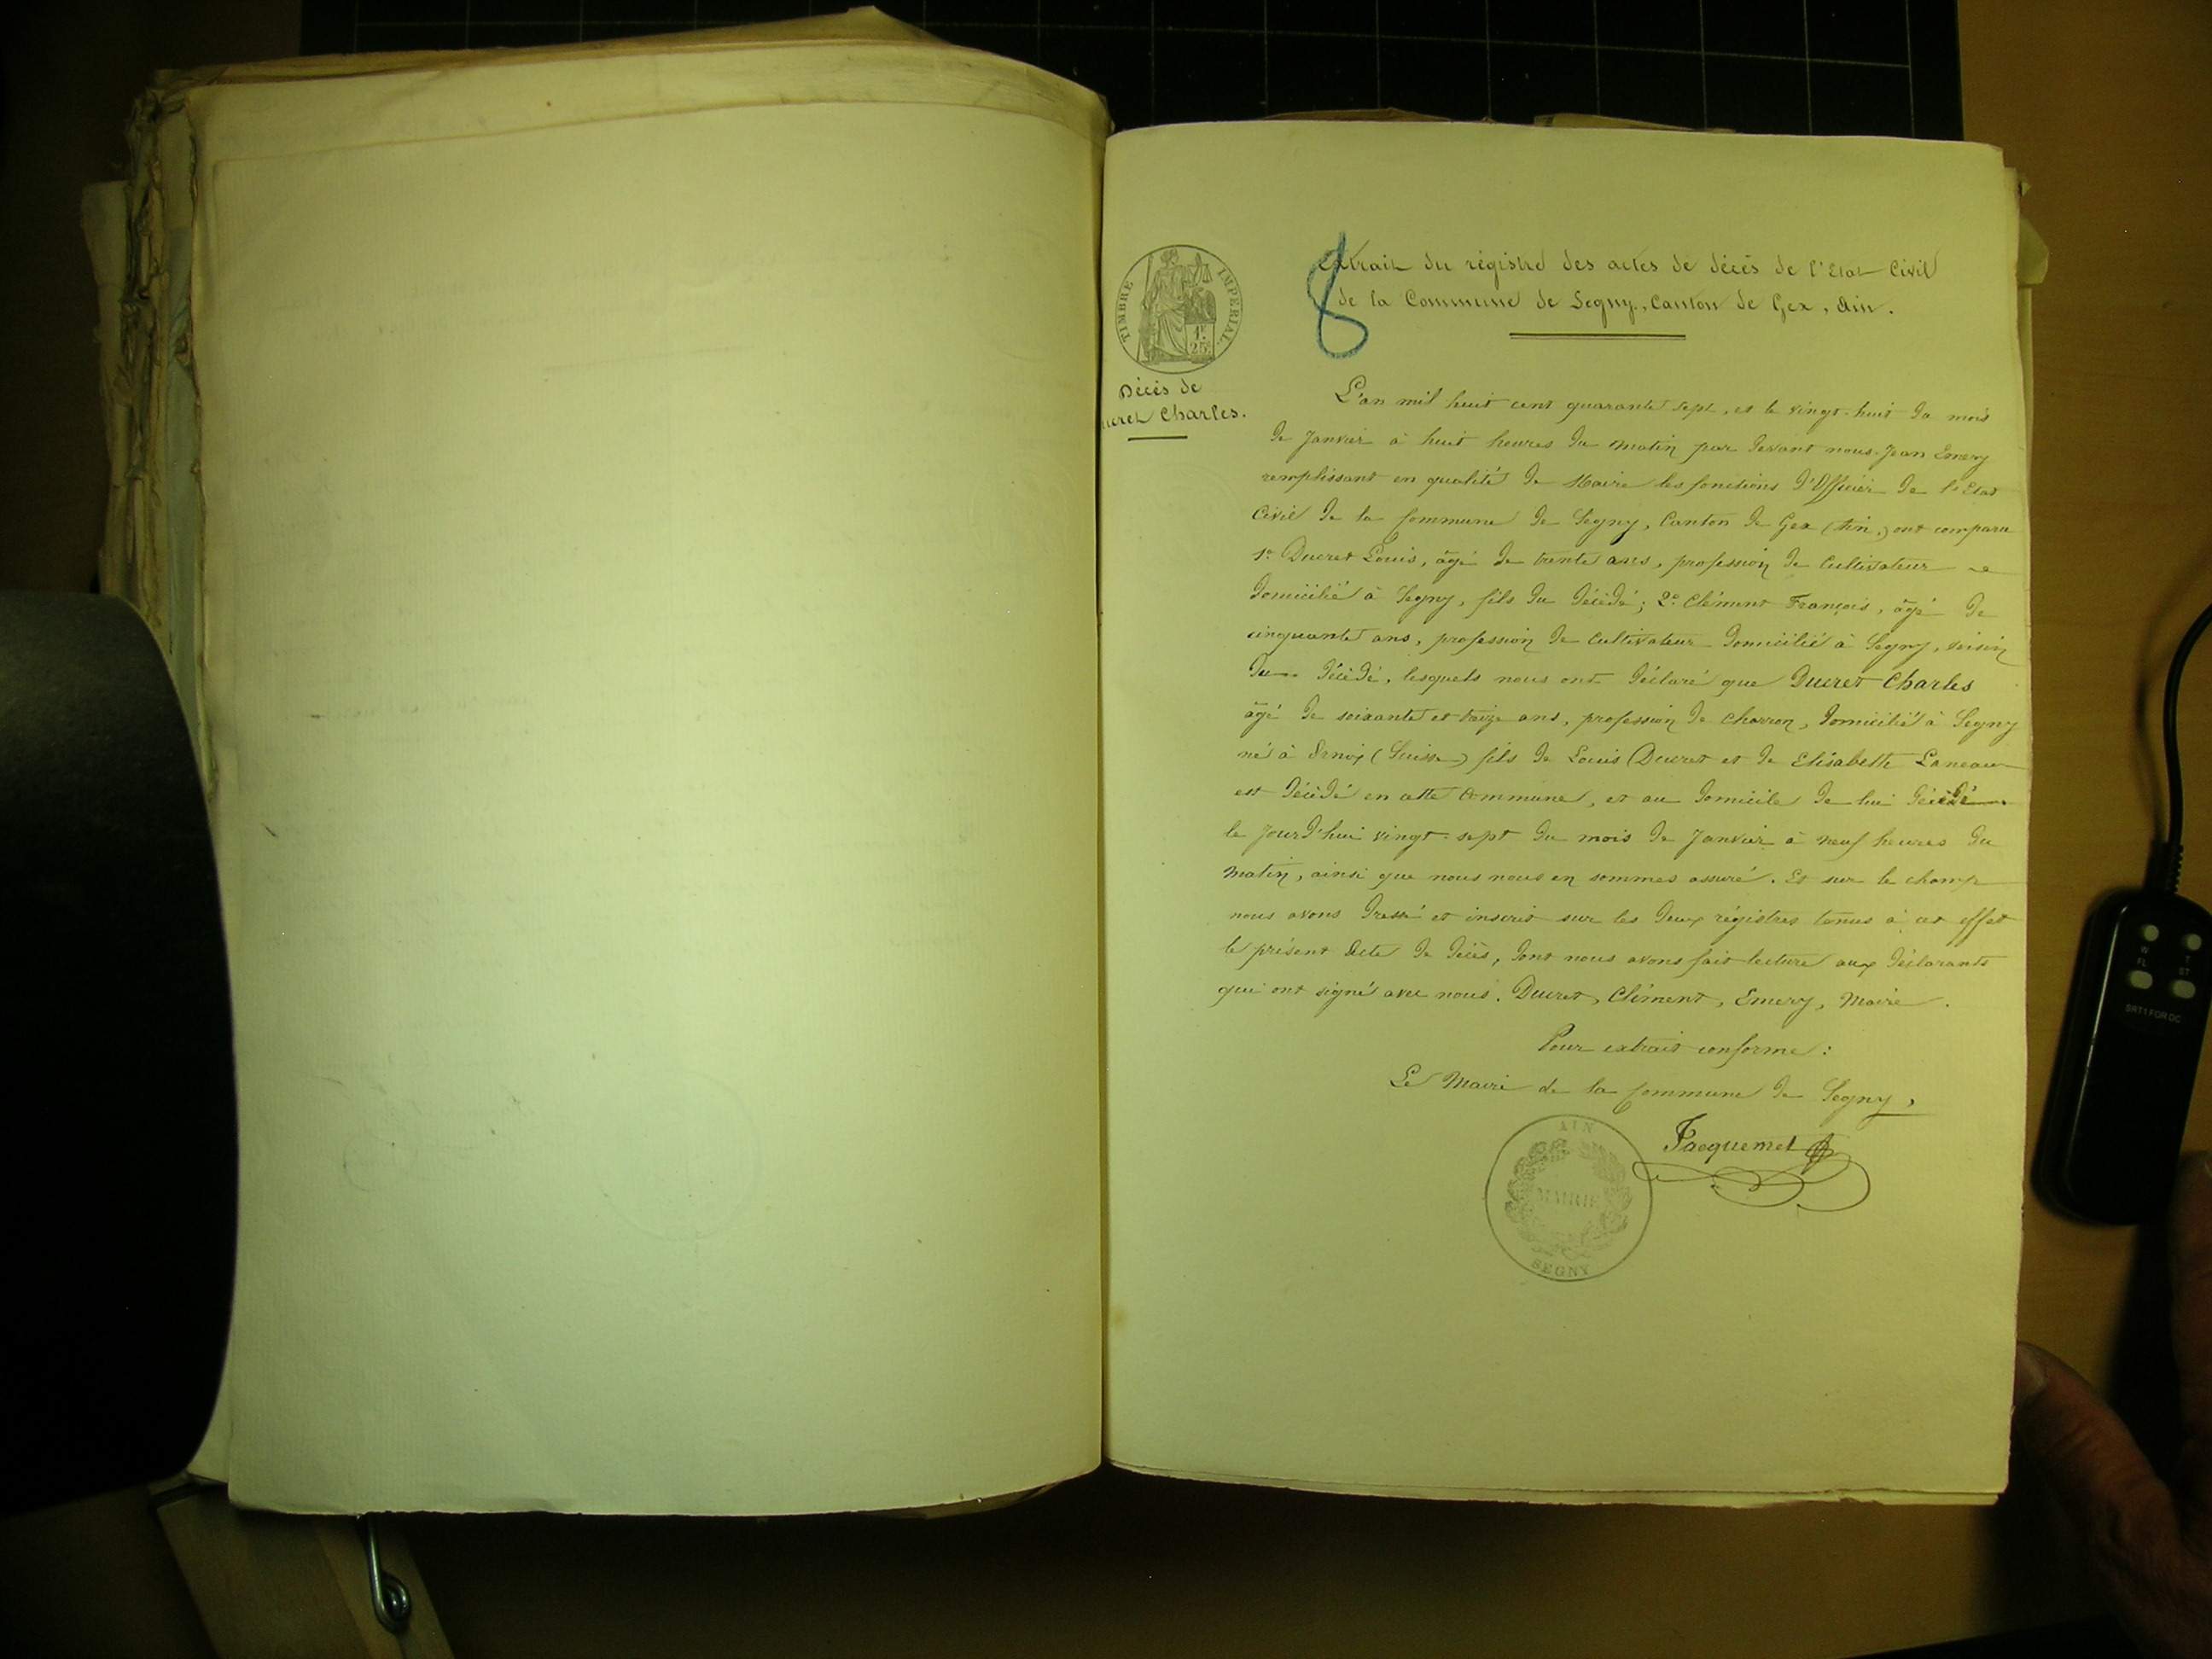 TIMBRE IMPERIAL
1F. 25c
8
Extrait du régistre des actes de décès de l'Etat Civil
de la Commune de Segny, Canton de Gex, Ain.
Décès de
ucret Charles.
L'an mil huit cent quarante sept, et le vingt-huit du mois
de Janvier à huit heures du matin par devant nous Jean Emery
remplissant en qualité de Maire les fonctions d'Officier de l'Etat
Civil de la Commune de Segny, Canton de Gex (Ain,) ont comparu
1º Ducret Louis, âgé de trente ans, profession de Cultivateur
domicilié à Segny, fils du décédé; 2º Clément François, âgé de
cinquante ans, profession de Cultivateur domicilié à Segny, voisin
du décédé, lesquels nous ont déclaré que Ducret Charles
âgé de soixante et treize ans, profession de Charron, domicilié à Segny
né à (Suisse) fils de Louis Ducret et de Elisabeth
est décédé en cette Commune, et au domicile de lui décédé
le Jourd'hui vingt-sept du mois de Janvier à neuf heures du
matin, ainsi que nous nous en sommes assuré. Et sur le champ
nous avons dressé et inscrit sur les deux régistres tenus à cet effet
le présent Acte de décès, dont nous avons fait lecture aux déclarants
qui ont signé avec nous. Ducret, Clément, Emery, Maire.
Pour extrait conforme :
Le Maire de la Commune de Segny,
Jacquemet
AIN
MAIRIE
SEGNY
BRT1 FOR DC